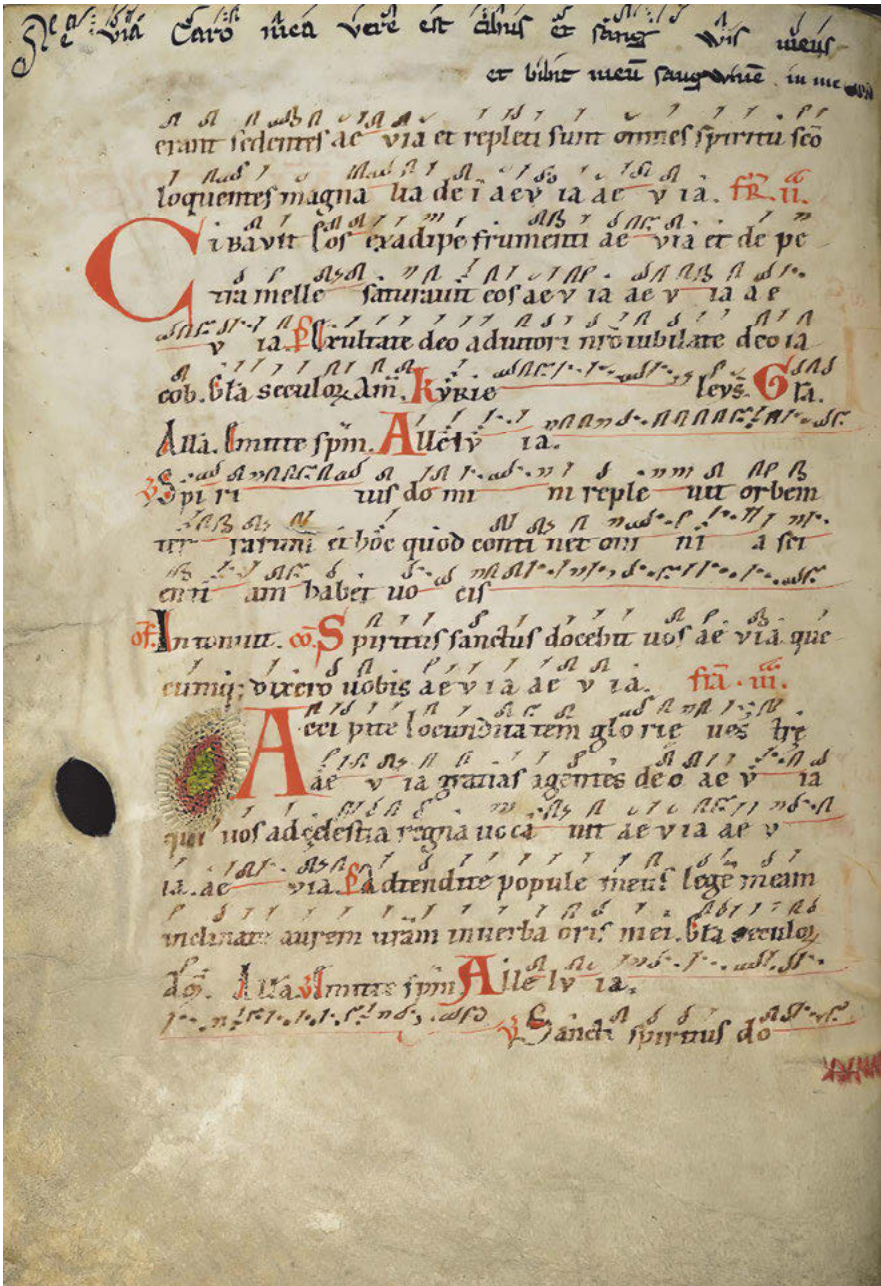 via Caro mea vere est cibus et sang vis meus
et bibit meū sangvinē in me
erant sedentes ae via et repleti sunt omnes spiritu scō
loquentes magna lia dei aev ia ae v ia. fr̄. ii.
Cibavit eos exadipe frumenti ae via et de pe
tra melle saturavit eos ae v ia ae v ia a e
v ia. Ps Exultate deo adiutori nr̄o iubilate deo ia
cob. Gl̄a seculoꝝ Am̄. kyrie leys̄. Gl̄a.
All̄a. Emitte sp̄m. Allelv ia.
℣ Spi ri tus do mi ni reple uit orbem
ter rarum et hoc quod conti net om ni a sci
enti am habet uo cis
of̄. Intonuit. cō. Spiritus sanctus docebit uos ae via que
cumq; dixero uobis ae v ia ae v ia. fr̄ia. iii.
Acci pite iocunditatem glo rie ues tre
ae v ia gratias agentes deo ae v ia
qui uos ad cęlestia regna uoca uit ae v ia ae v
ia. ae via. Ps Adtendite popule meus legē meam
inclinate aurem ur̄am inuerba oris mei. Gl̄a seculoꝝ
All̄a. ℣ Emitte sp̄m Alle lv ia.
℣ Sancti spiritus do